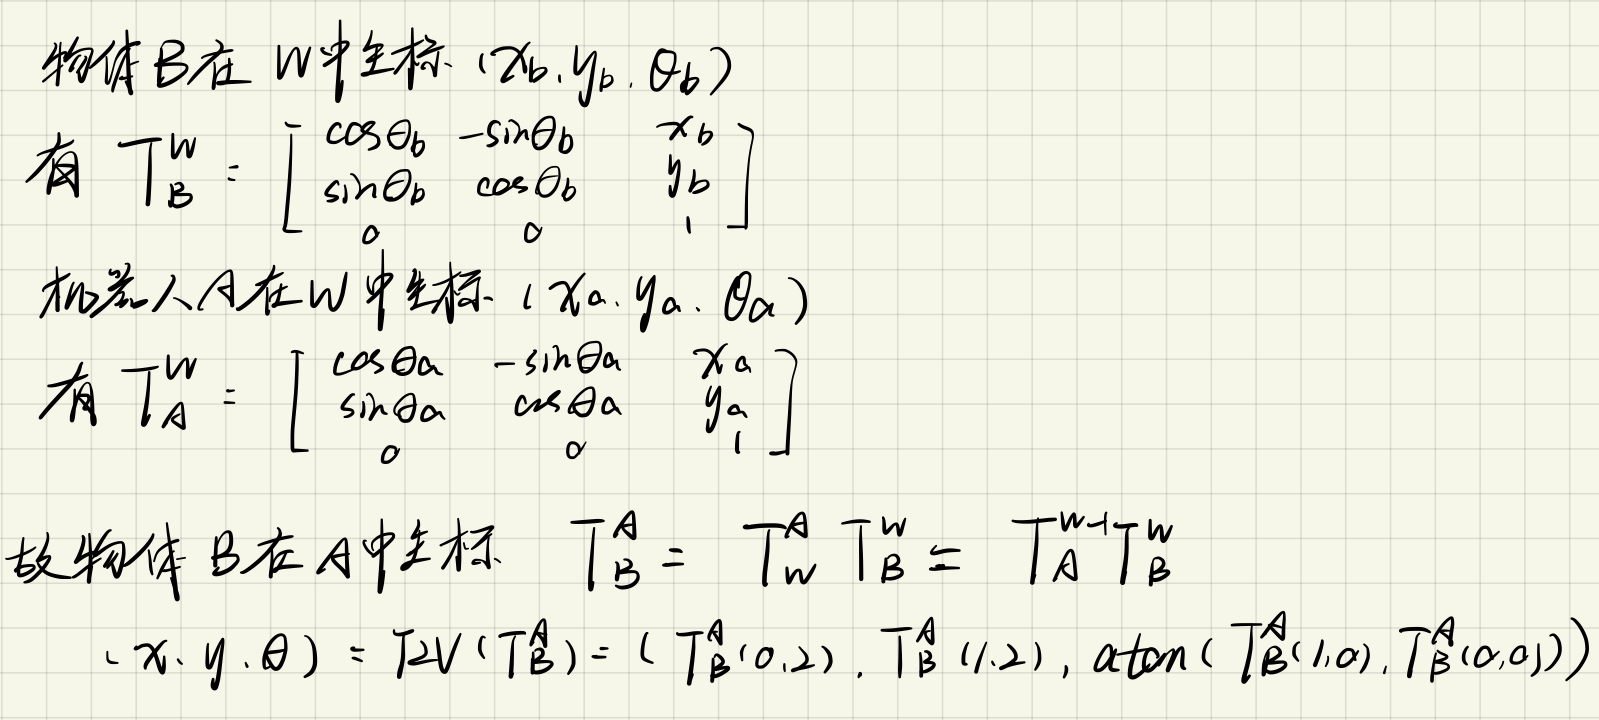 物体B在 W中坐标 (x_b, y_b, θ_b)
有 T_B^W = [ cosθ_b -sinθ_b x_b
sinθ_b cosθ_b y_b
0 0 1 ]
机器人A在W中坐标 (x_a, y_a, θ_a)
有 T_A^W = [ cosθ_a -sinθ_a x_a
sinθ_a cosθ_a y_a
0 0 1 ]
故物体B在A中坐标 T_B^A = T_W^A T_B^W = T_A^{W-1} T_B^W
(x, y, θ) = T2V(T_B^A) = (T_B^A(0,2), T_B^A(1,2), atan(T_B^A(1,0), T_B^A(0,0)))